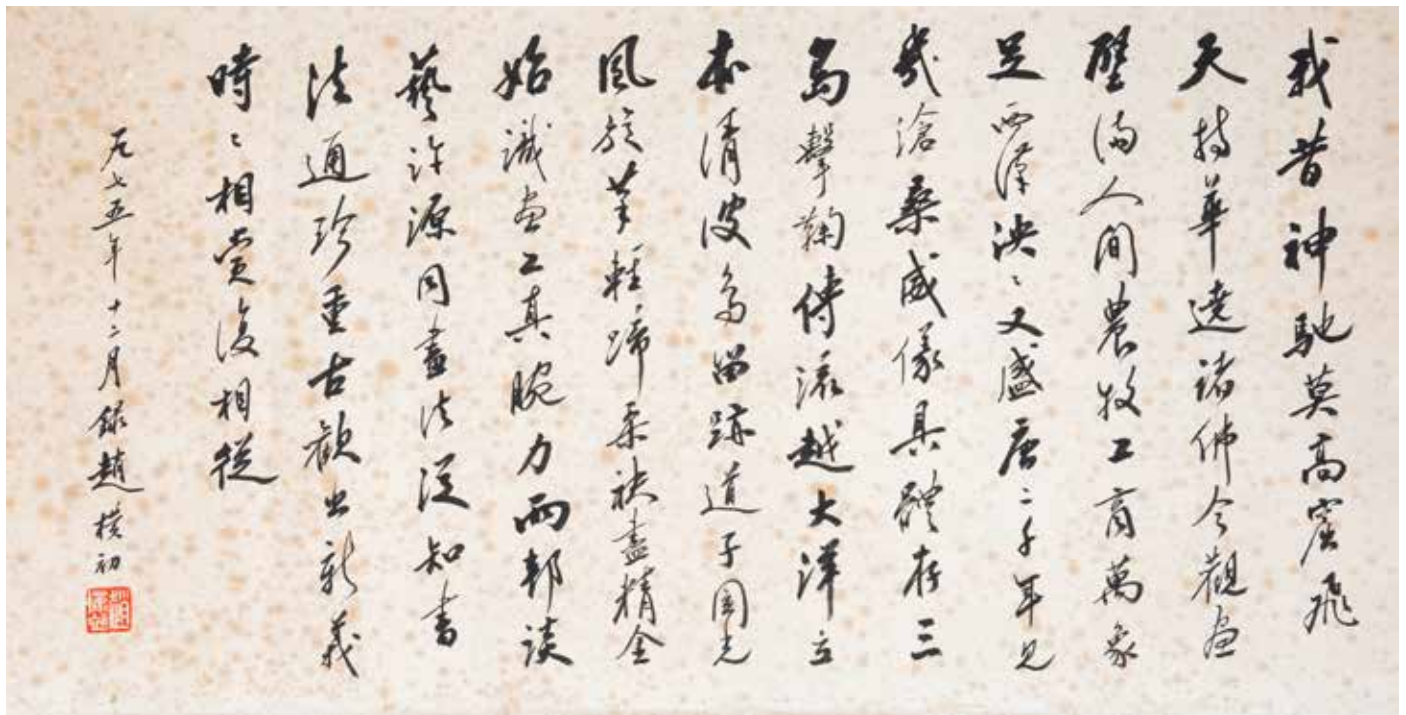 我昔神馳莫高窟飛
天持華遶諸佛今觀画
壁滿人間農牧工商萬象
足西漢泱々又盛唐二千年見
幾滄桑威儀具體存三
島擊鞠傳流越大洋立
本清波為留跡道子圓光
風旋筆輕蹄柔袂盡精全
始識画工真腕力兩邦談
藝許源同畫法從知書
法通珍重古歡出新義
時々相賞復相從
一九七五年十二月錄趙樸初
趙樸初